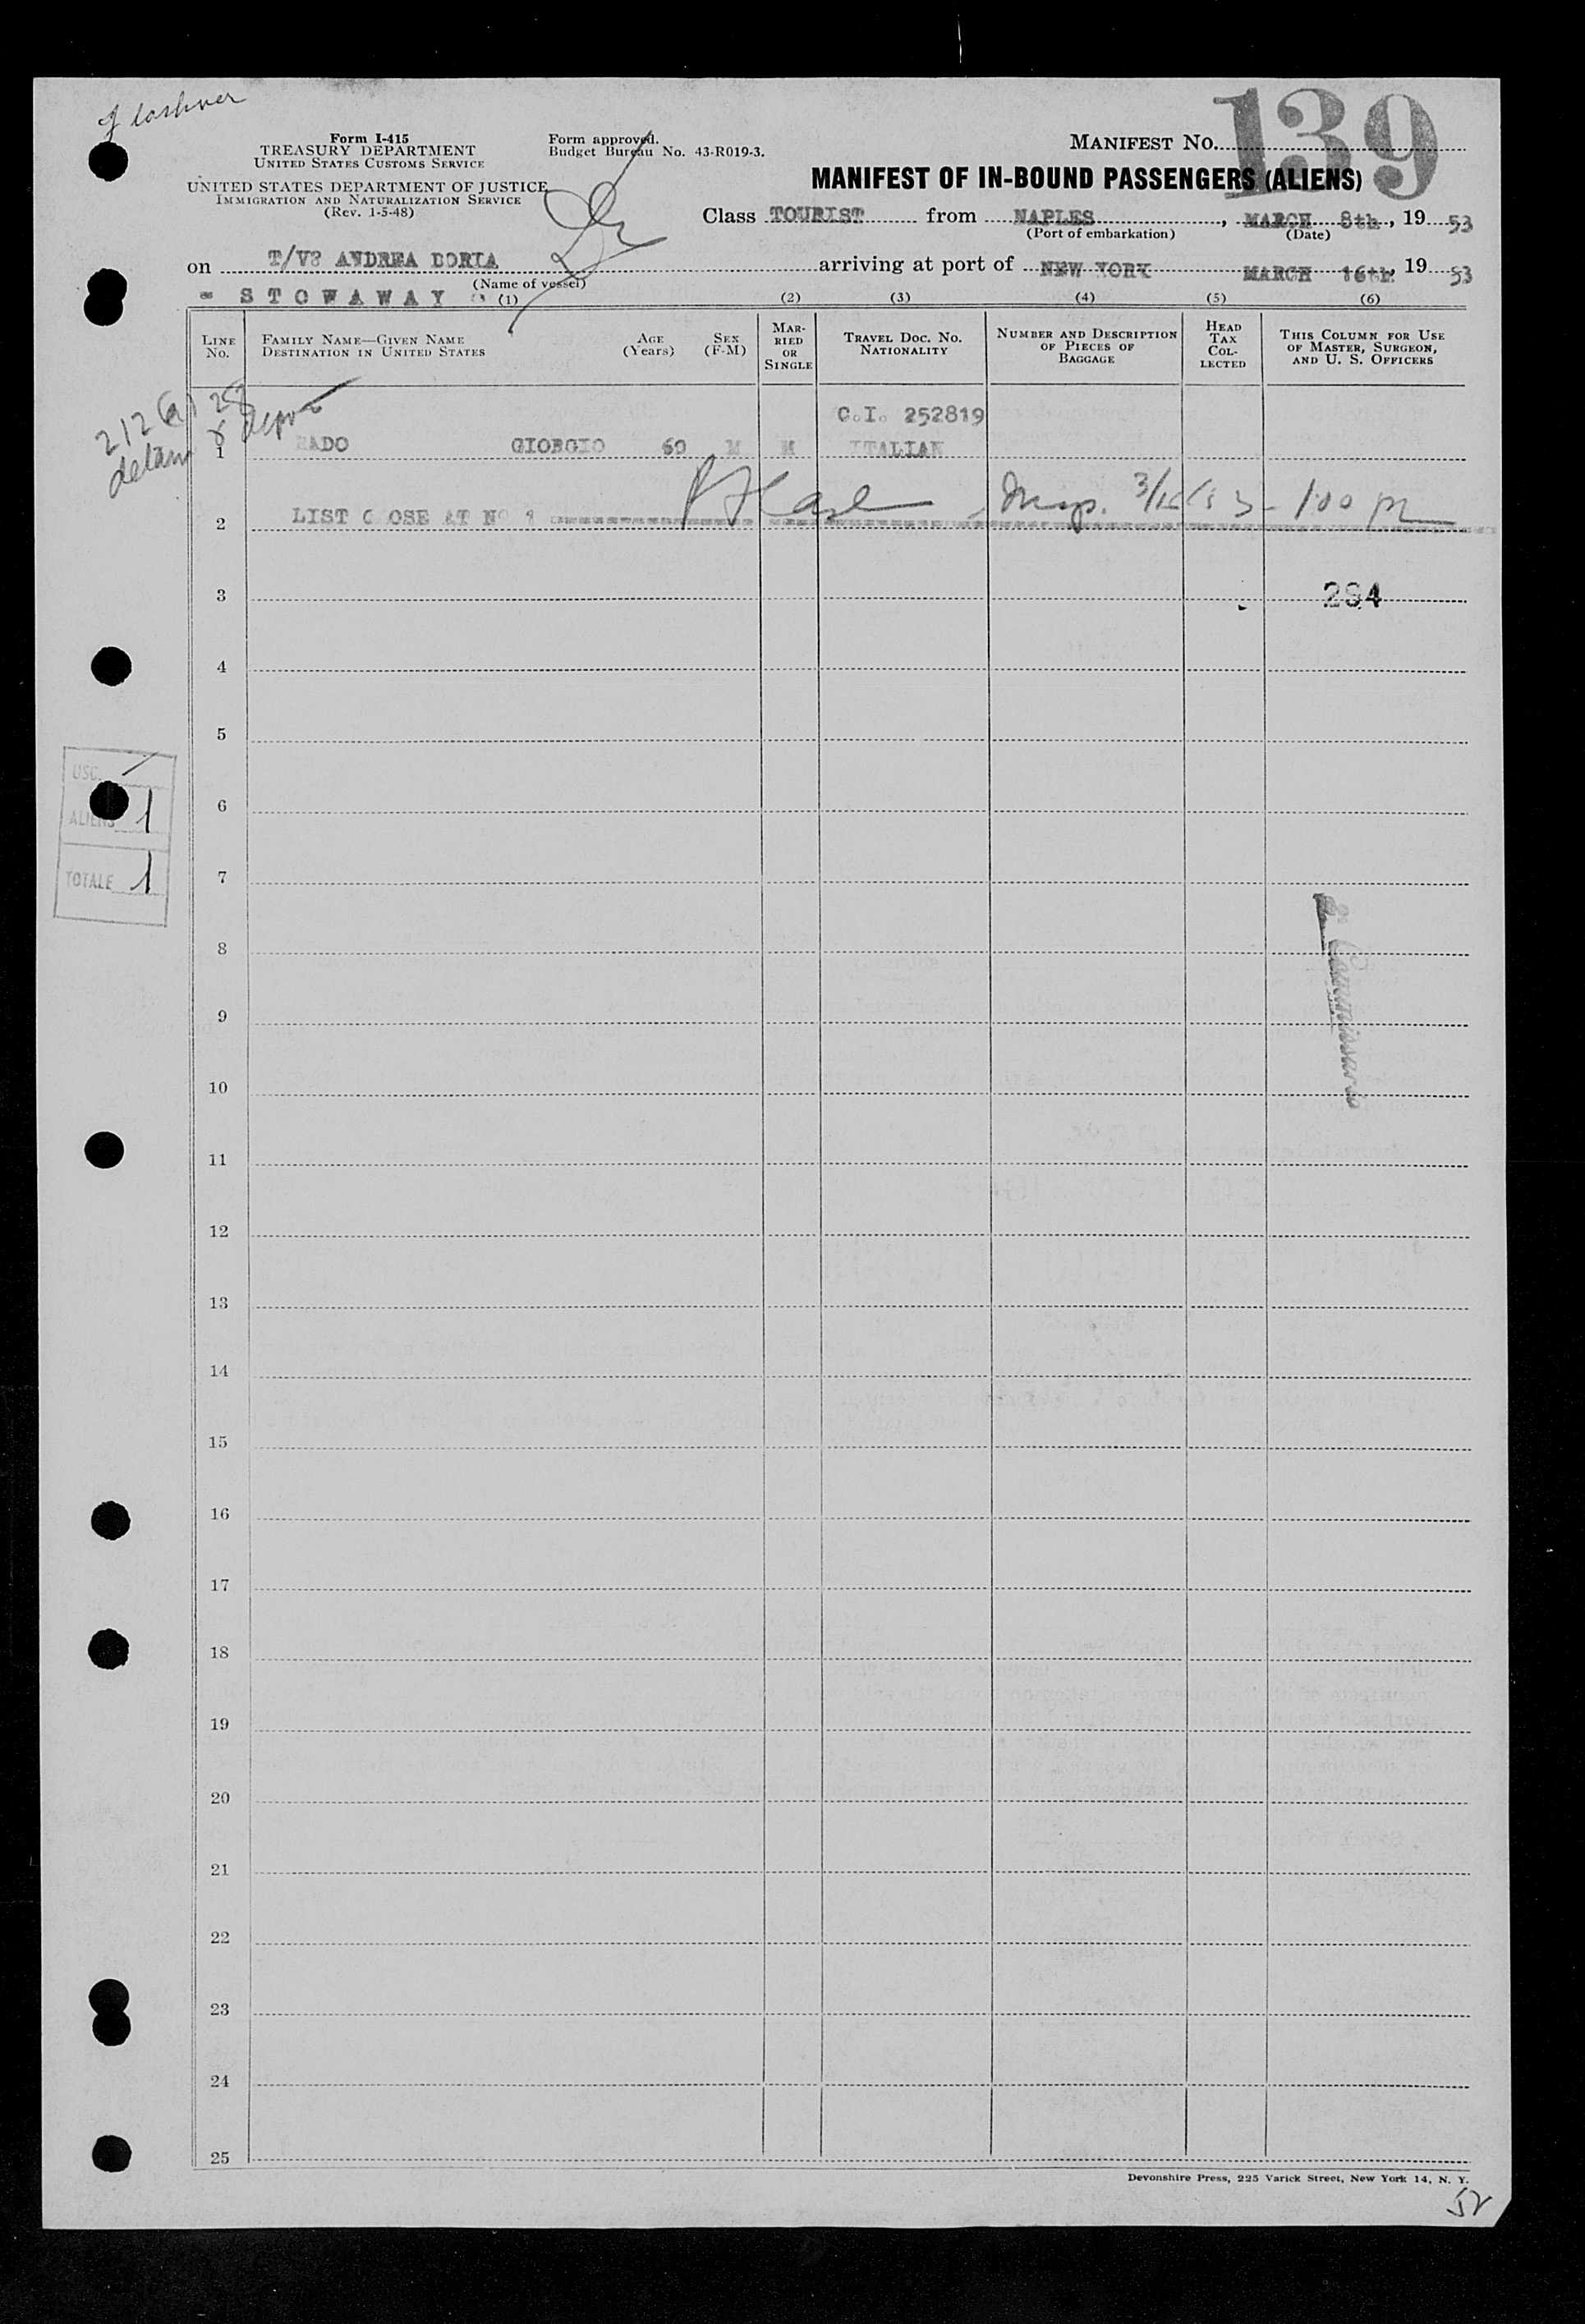 139
Form I-415
TREASURY DEPARTMENT
UNITED STATES CUSTOMS SERVICE
UNITED STATES DEPARTMENT OF JUSTICE
IMMIGRATION AND NATURALIZATION SERVICE
(Rev. 1-5-48)
Form approved.
Budget Bureau No. 43-R019-3.
MANIFEST No.
MANIFEST OF IN-BOUND PASSENGERS (ALIENS)
Class TOURIST from NAPLES, MARCH 8th, 19 53
(Port of embarkation) (Date)
on ANDREA DORIA arriving at port of NEW YORK MARCH 16th, 19 53
(Name of vessel)
- STOWAWAY (1) (2) (3) (4) (5) (6)
LINE No.
FAMILY NAME—GIVEN NAME
DESTINATION IN UNITED STATES
AGE (Years)
SEX (F-M)
MARRIED OR SINGLE
TRAVEL DOC. NO.
NATIONALITY
NUMBER AND DESCRIPTION OF PIECES OF BAGGAGE
HEAD TAX COLLECTED
THIS COLUMN FOR USE OF MASTER, SURGEON, AND U. S. OFFICERS
212 (a)
C.I. 252819
1 GIORGIO 60 M M ITALIAN
2 LIST C OSE AT Nº 1
3 294
4
5
USC.
6
ALIENS 1
7
TOTALE 1
8
9
10
11
12
13
14
15
16
17
18
19
20
21
22
23
24
25
Devonshire Press, 225 Varick Street, New York 14, N. Y.
52